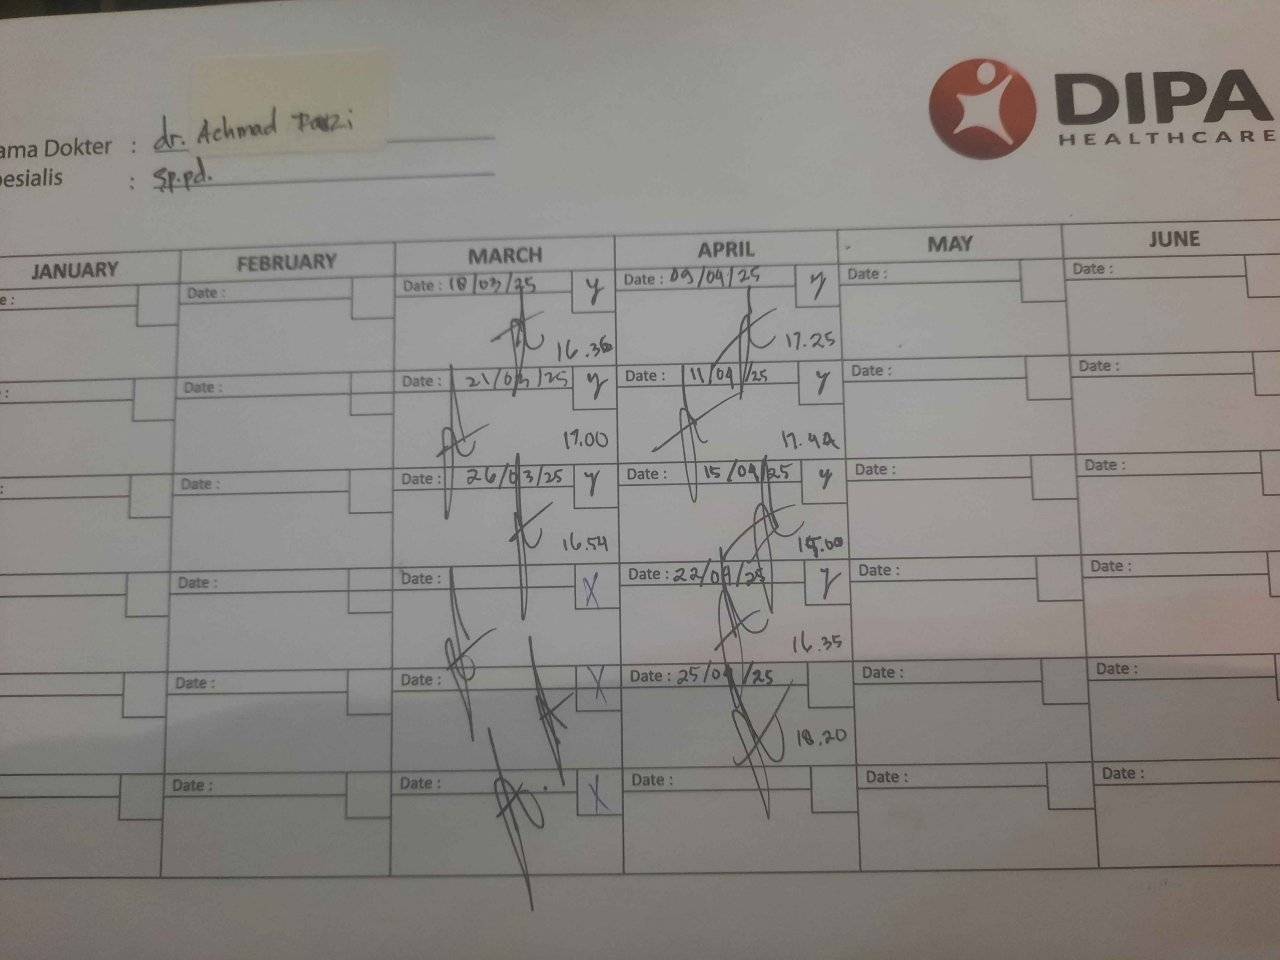 DIPA
HEALTHCARE
ama Dokter : dr. Achmad
esialis : Sp.pd.
JANUARY FEBRUARY MARCH APRIL MAY JUNE
e : Date : Date : 18/03/25 y Date : 09/04/25 y Date : Date :
16.36 17.25
: Date : Date : 21/03/25 y Date : 11/04/25 y Date : Date :
17.00 17.42
: Date : Date : 26/03/25 y Date : 15/04/25 y Date : Date :
16.54
Date : Date : X Date : 22/04/25 y Date : Date :
16.35
Date : Date : X Date : 25/04/25 Date : Date :
18.20
Date : Date : X Date : Date : Date :